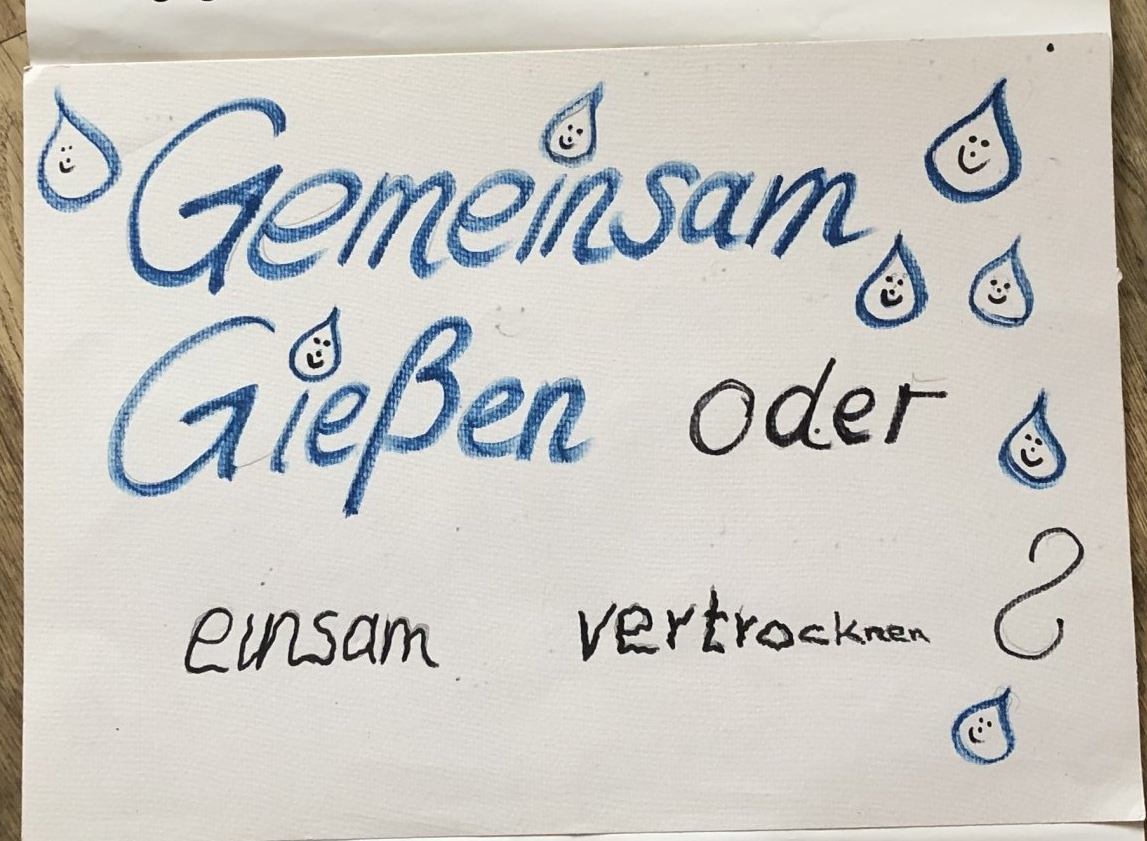 Gemeinsam
Gießen oder
einsam vertrocknen?